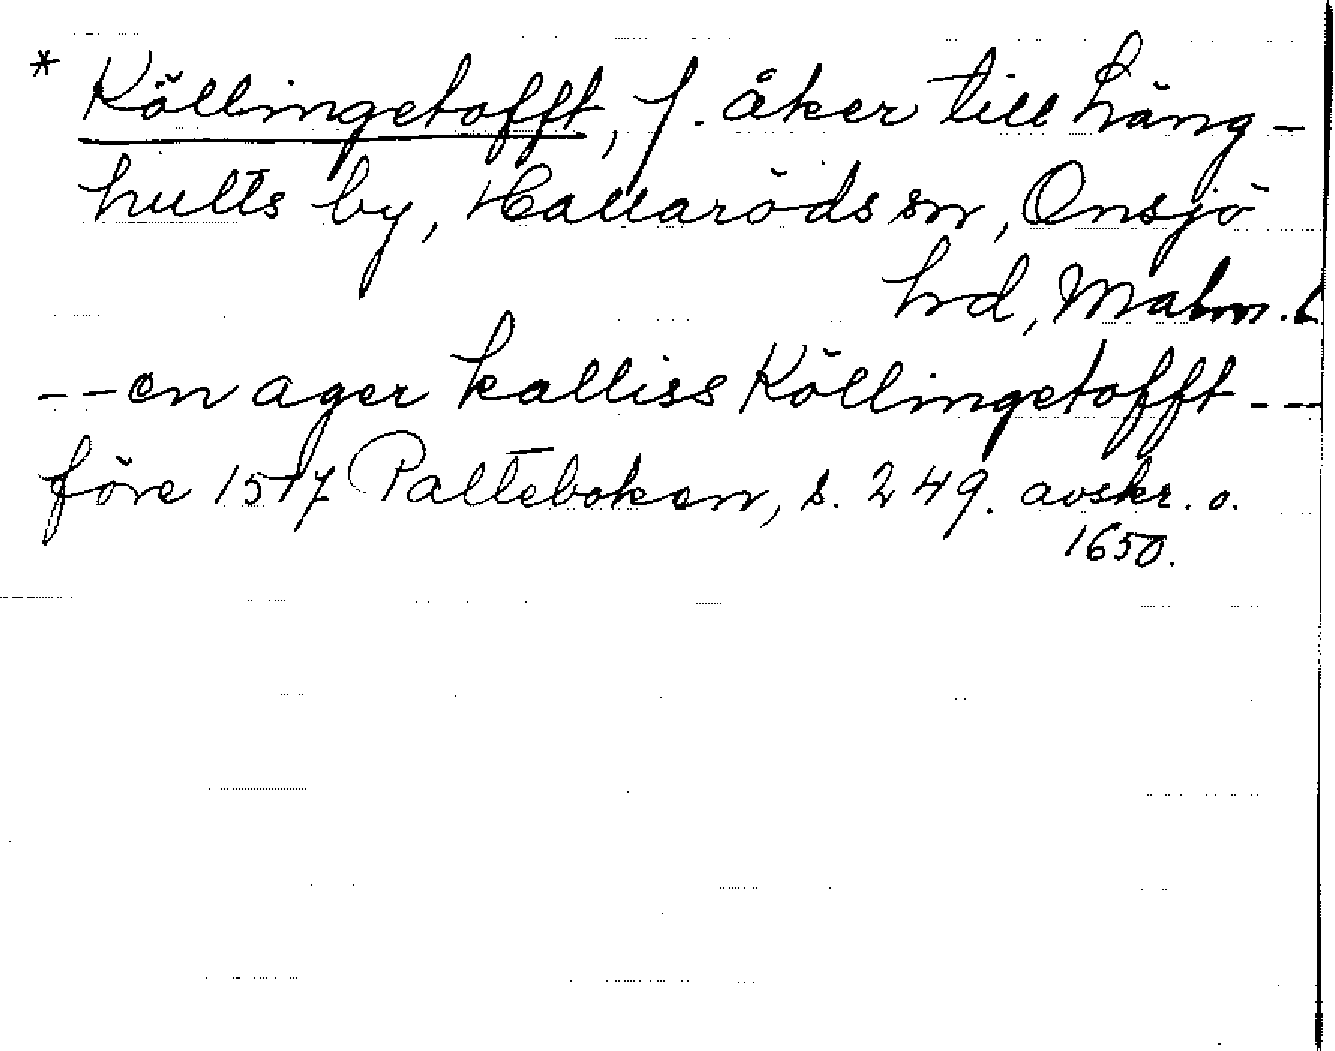 * Köllingetofft, f. åker till häng-
hults by, Hallaröds sn, Onsjö
hd, Malm. l
-- en ager kalliss Köllingetofft ---
före 1517 Palteboken, s. 249. avskr. o.
1650.